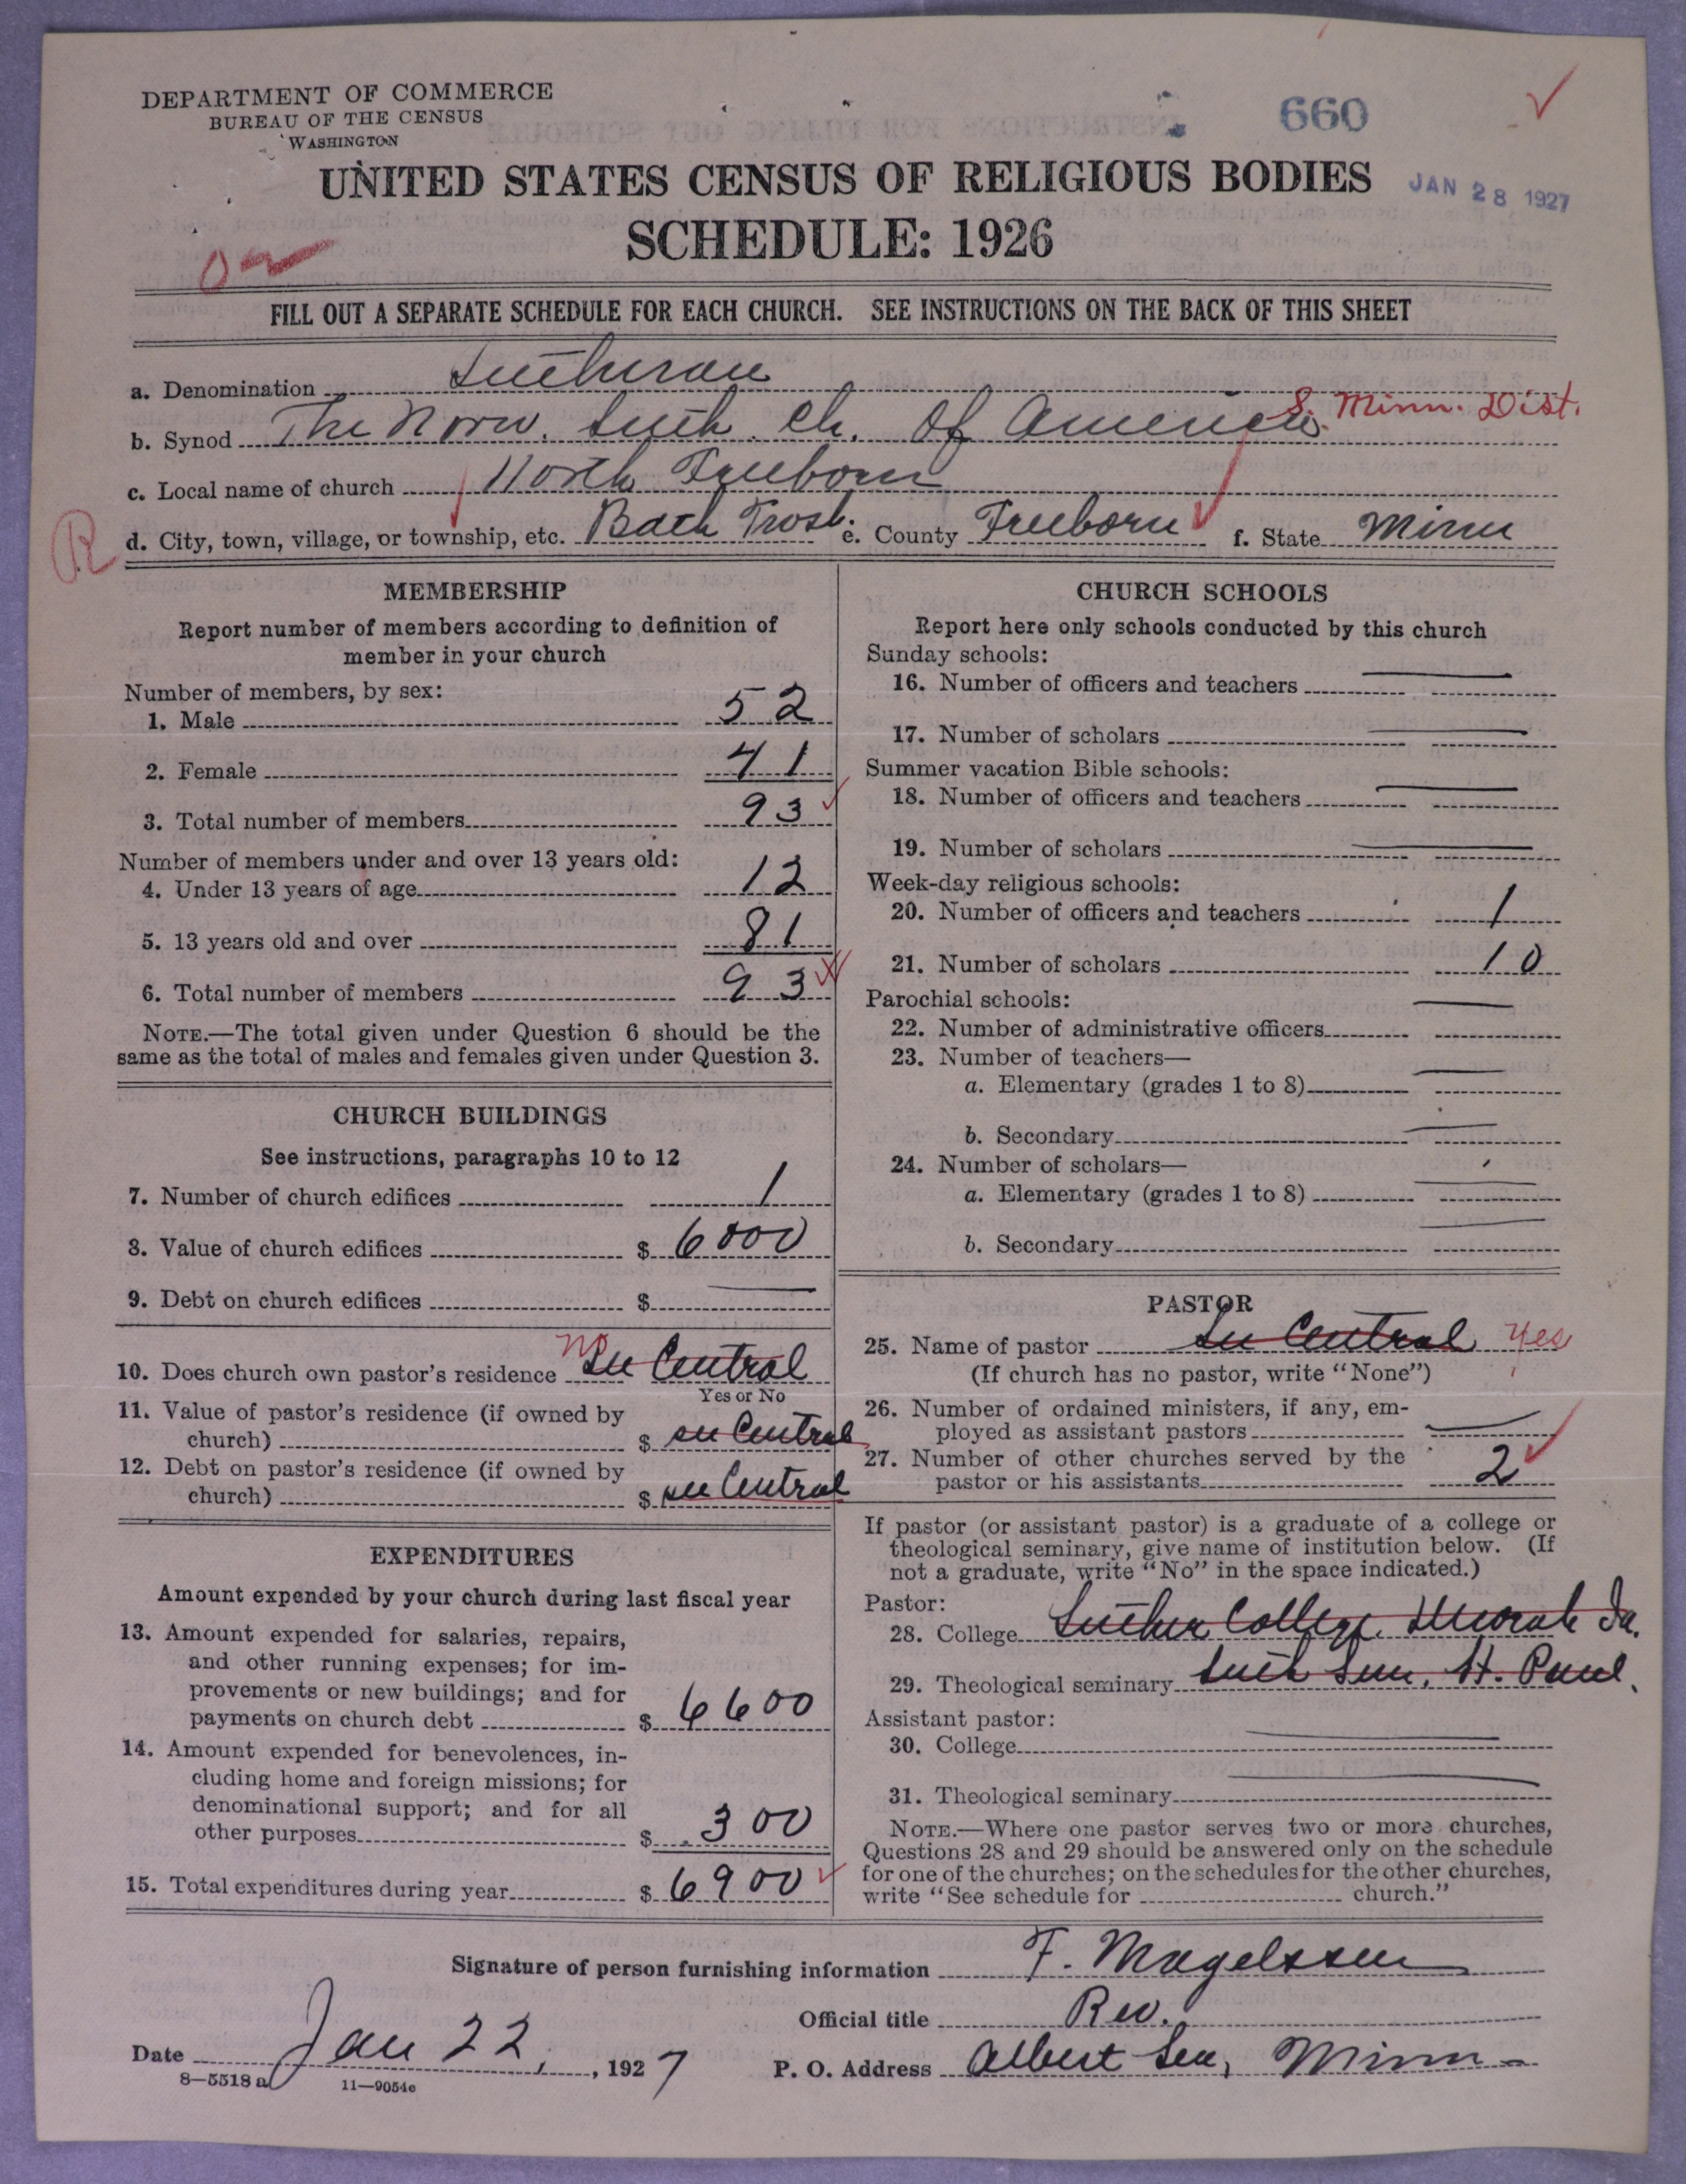 DEPARTMENT OF COMMERCE
BUREAU OF THE CENSUS
WASHINGTON
660
UNITED STATES CENSUS OF RELIGIOUS BODIES
JAN 28 1927
SCHEDULE: 1926
FILL OUT A SEPARATE SCHEDULE FOR EACH CHURCH. SEE INSTRUCTIONS ON THE BACK OF THIS SHEET
a. Denomination Lutheran
b. Synod The Norw. Luth. Ch. Of America. S. Minn. Dist.
c. Local name of church North Freeborn
R
d. City, town, village, or township, etc. Bath e. County Freeborn f. State Minn
MEMBERSHIP
Report number of members according to definition of
member in your church
Number of members, by sex:
1. Male 52
2. Female 41
3. Total number of members 93
Number of members under and over 13 years old:
4. Under 13 years of age 12
5. 13 years old and over 81
6. Total number of members 93
NOTE.—The total given under Question 6 should be the
same as the total of males and females given under Question 3.
CHURCH BUILDINGS
See instructions, paragraphs 10 to 12
7. Number of church edifices 1
8. Value of church edifices $ 6000
9. Debt on church edifices $
10. Does church own pastor's residence No See Central
Yes or No
11. Value of pastor's residence (if owned by
church) $ see Central
12. Debt on pastor's residence (if owned by
church) $ see Central
EXPENDITURES
Amount expended by your church during last fiscal year
13. Amount expended for salaries, repairs,
and other running expenses; for im-
provements or new buildings; and for
payments on church debt $ 6600
14. Amount expended for benevolences, in-
cluding home and foreign missions; for
denominational support; and for all
other purposes $ 300
15. Total expenditures during year $ 6900
CHURCH SCHOOLS
Report here only schools conducted by this church
Sunday schools:
16. Number of officers and teachers
17. Number of scholars
Summer vacation Bible schools:
18. Number of officers and teachers
19. Number of scholars
Week-day religious schools:
20. Number of officers and teachers 1
21. Number of scholars 10
Parochial schools:
22. Number of administrative officers
23. Number of teachers—
a. Elementary (grades 1 to 8)
b. Secondary
24. Number of scholars—
a. Elementary (grades 1 to 8)
b. Secondary
PASTOR
25. Name of pastor See Central Yes
(If church has no pastor, write "None")
26. Number of ordained ministers, if any, em-
ployed as assistant pastors
27. Number of other churches served by the
pastor or his assistants 2
If pastor (or assistant pastor) is a graduate of a college or
theological seminary, give name of institution below. (If
not a graduate, write "No" in the space indicated.)
Pastor:
28. College Luther College, Decorah Ia.
29. Theological seminary Luth Sem, St. Paul.
Assistant pastor:
30. College
31. Theological seminary
NOTE.—Where one pastor serves two or more churches,
Questions 28 and 29 should be answered only on the schedule
for one of the churches; on the schedules for the other churches,
write "See schedule for church."
Signature of person furnishing information T. Magelssen
Official title Rev.
Date Jan 22, , 1927 P. O. Address Albert Lea, Minn
8—5518 a 11—9054c